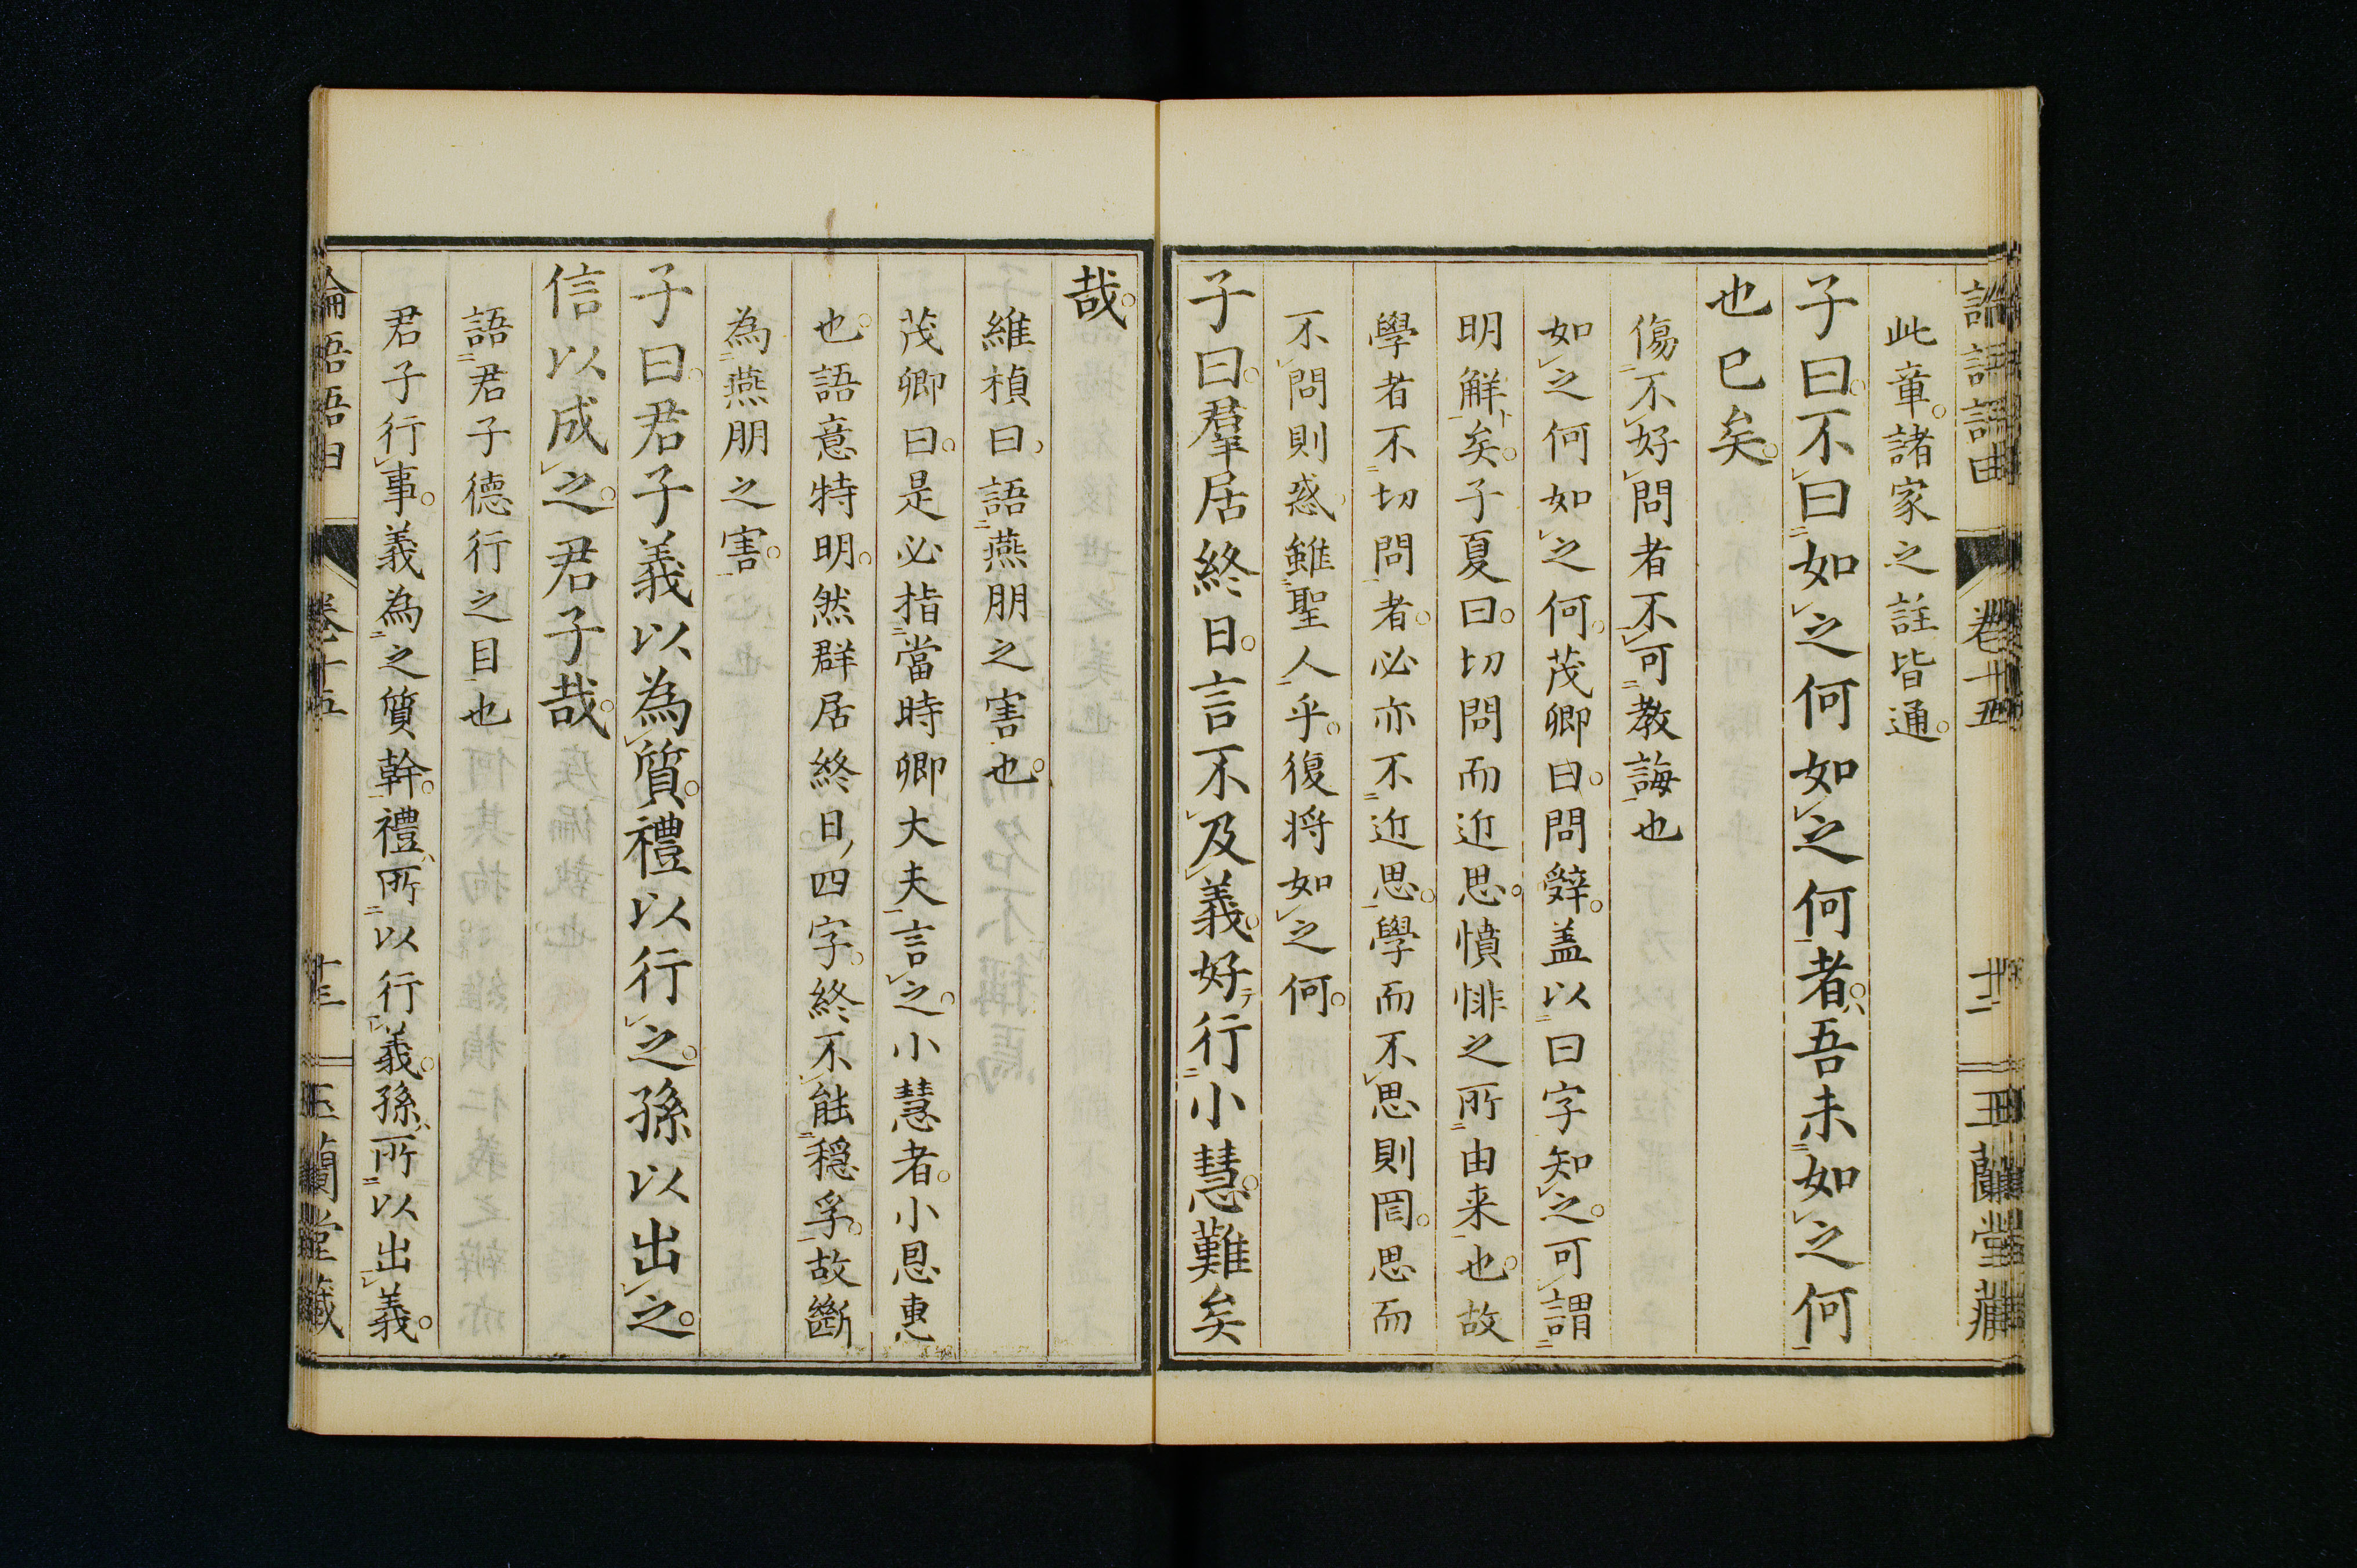 論語語由 卷十五 十二 玉蘭堂藏
此章。諸家之註皆通。
子曰。不曰如之何如之何者。吾未如之何
也已矣。
傷不好問者不可教誨也
如之何如之何。茂卿曰。問辭。盖以曰字知之。可謂
明解矣。子夏曰。切問而近思。憤悱之所由来也。故
學者不切問者。必亦不近思。學而不思則罔。思而
不問則惑。雖聖人乎。復将如之何。
子曰。羣居終日。言不及義。好行小慧。難矣
哉。
維楨曰、語燕朋之害也。
茂卿曰。是必指當時卿大夫言之。小慧者。小恩惠
也。語意特明。然群居終日、四字。終不能穏孚。故斷
為燕朋之害。
子曰。君子義以為質。禮以行之。孫以出之。
信以成之。君子哉。
語君子德行之目也
君子行事。義為之質幹。禮所以行義。孫所以出義。
論語語由 卷十五 十三 玉蘭堂藏